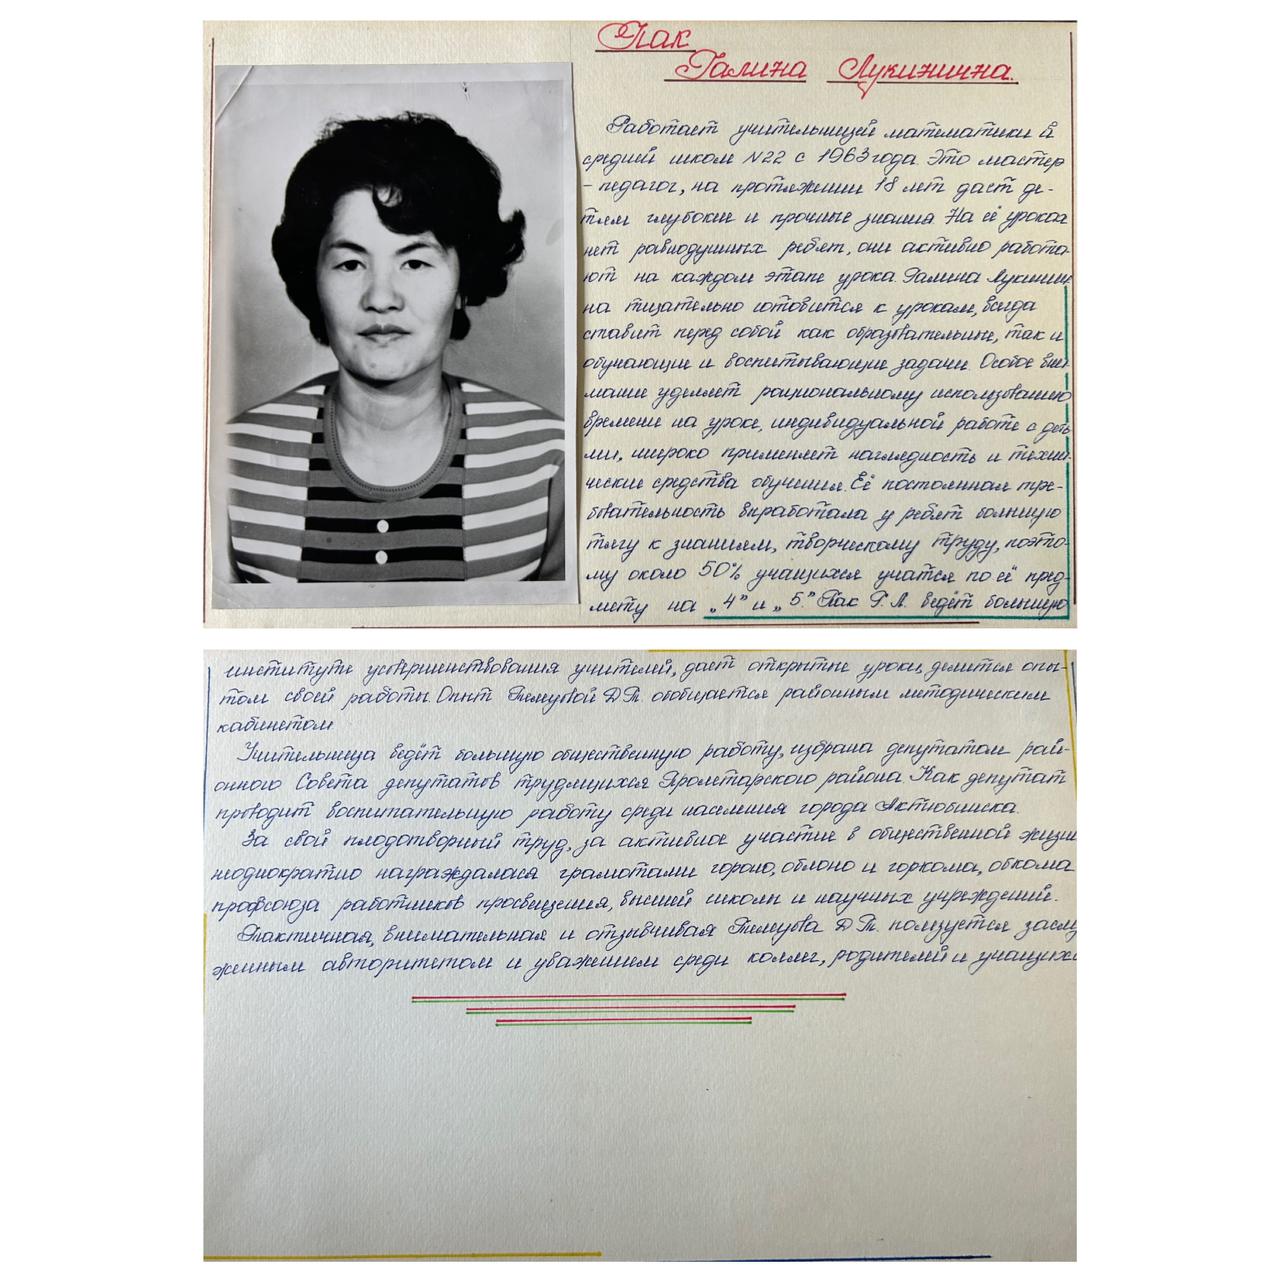 Пак
Галина Лукинична.
Работает учительницей математики в
средней школе N22 с 1963 года. Это мастер
- педагог, на протяжении 18 лет даёт де-
тям глубокие и прочные знания. На её уроках
нет равнодушных ребят, они активно работа-
ют на каждом этапе урока. Галина Лукинич-
на тщательно готовится к урокам, всегда
ставит перед собой как образовательные, так и
обучающие и воспитывающие задачи. Особое вни-
мание уделяет рациональному использованию
времени на уроке, индивидуальной работе с деть
ми, широко применяет наглядность и техни-
ческие средства обучения. Её постоянная тре-
бовательность выработала у ребят большую
тягу к знаниям, творческому труду, поэто-
му около 50% учащихся учатся по её пред-
мету на „4" и „5." Пак Г. Л. ведёт большую
институте усовершенствования учителей, дает открытые уроки, делится опы-
том своей работы. Опыт Темуовой Д.Т. обобщается районным методическим
кабинетом.
Учительница ведёт большую общественную работу, избрана депутатом рай-
онного Совета депутатов трудящихся Пролетарского района. Как депутат
проводит воспитательную работу среди населения города Актюбинска.
За свой плодотворный труд, за активное участие в общественной жизни
неоднократно награждалась грамотами гороно, облоно и горкома, обкома
профсоюза работников просвещения, высшей школы и научных учреждений.
Тактичная, внимательная и отзывчивая Темуова Д.Т. пользуется заслу
женным авторитетом и уважением среди коллег, родителей и учащихся